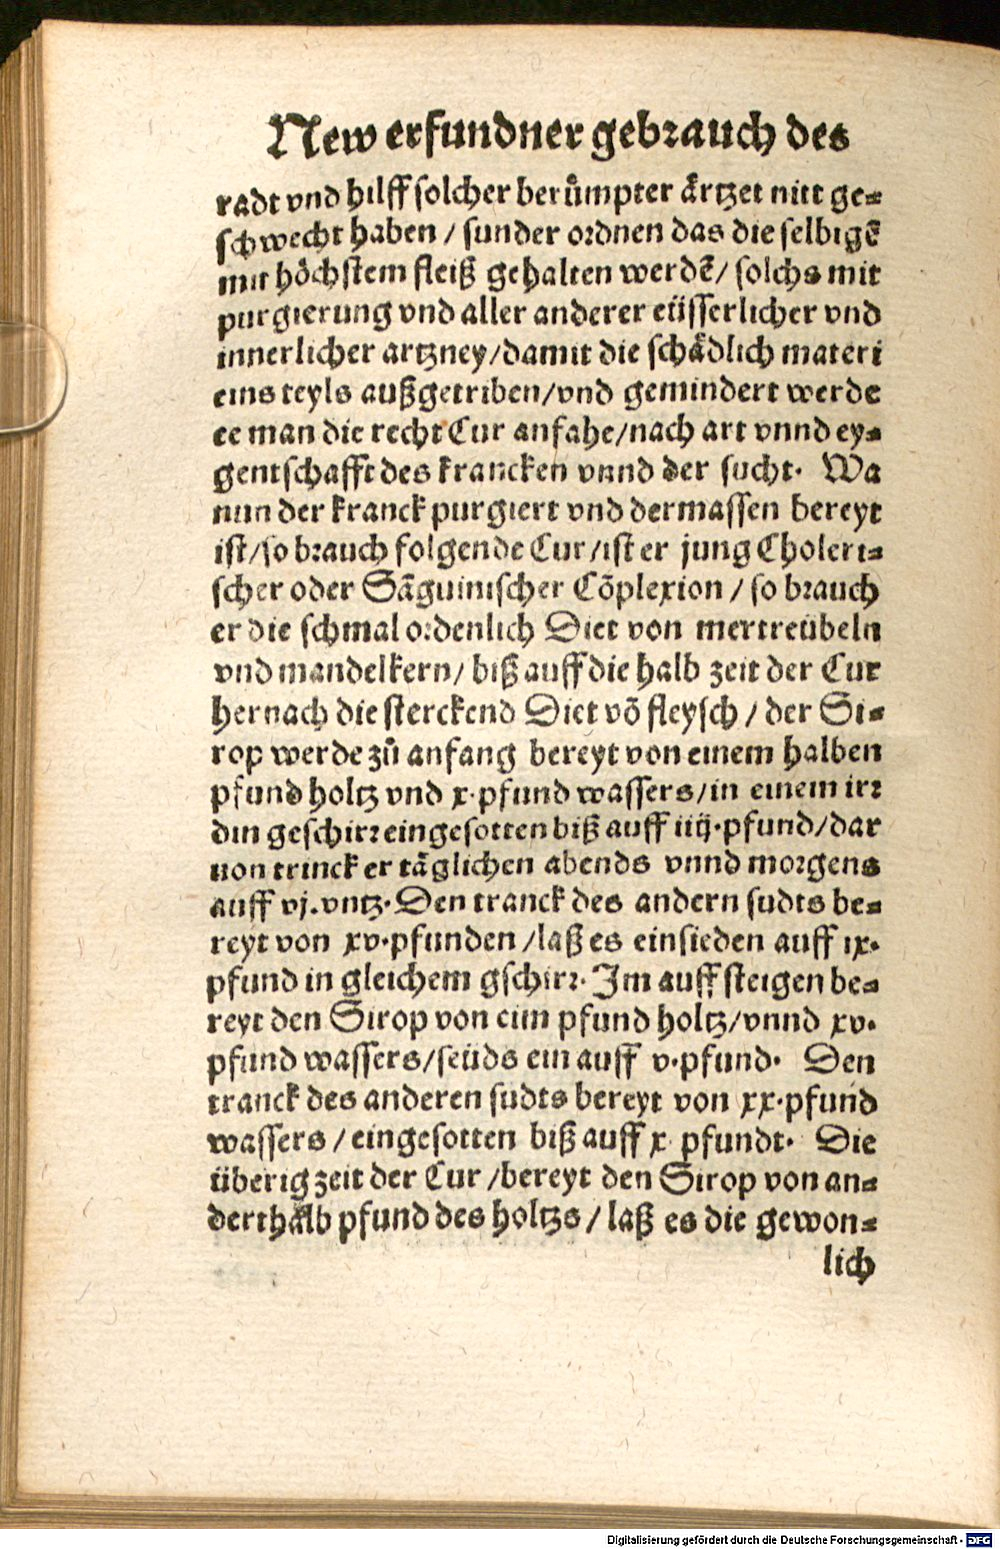 New erfundner gebrauch des
radt vnd hilff solcher berůmpter aͤrtzet nitt ge⸗
schwecht haben / sunder ordnen das die selbigẽ
mit hoͤchstem fleiß gehalten werdẽ / solchs mit
purgierung vnd aller anderer eüsserlicher vnd
innerlicher artzney / damit die schaͤdlich materi
eins teyls außgetriben / vnd gemindert werde
ee man die recht Cur anfahe / nach art vnnd ey⸗
gentschafft des krancken vnnd der sucht. Wa
nun der kranck purgiert vnd dermassen bereyt
ist / so brauch folgende Cur / ist er jung Choleri⸗
scher oder Sãguinischer Cõplexion / so brauch
er die schmal ordenlich Diet von mertreübeln
vnd mandelkern / biß auff die halb zeit der Cur
hernach die sterckend Diet võ fleysch / der Si⸗
rop werde zů anfang bereyt von einem halben
pfund holtz vnd x. pfund wassers / in einem irr
din geschirr eingesotten biß auff iiij. pfund / dar
uon trinck er taͤglichen abends vnnd morgens
auff vj. vntz. Den tranck des andern sudts be⸗
reyt von xv. pfunden / laß es einsieden auff ix.
pfund in gleichem gschirr. Im auff steigen be⸗
reyt den Sirop von eim pfund holtz / vnnd xv.
pfund wassers / seüds ein auff v. pfund. Den
tranck des anderen sudts bereyt von xx. pfund
wassers / eingesotten biß auff x pfundt. Die
überig zeit der Cur / bereyt den Sirop von an⸗
derthaͤlb pfund des holtzs / laß es die gewon⸗
lich
Digitalisierung gefördert durch die Deutsche Forschungsgemeinschaft - DFG